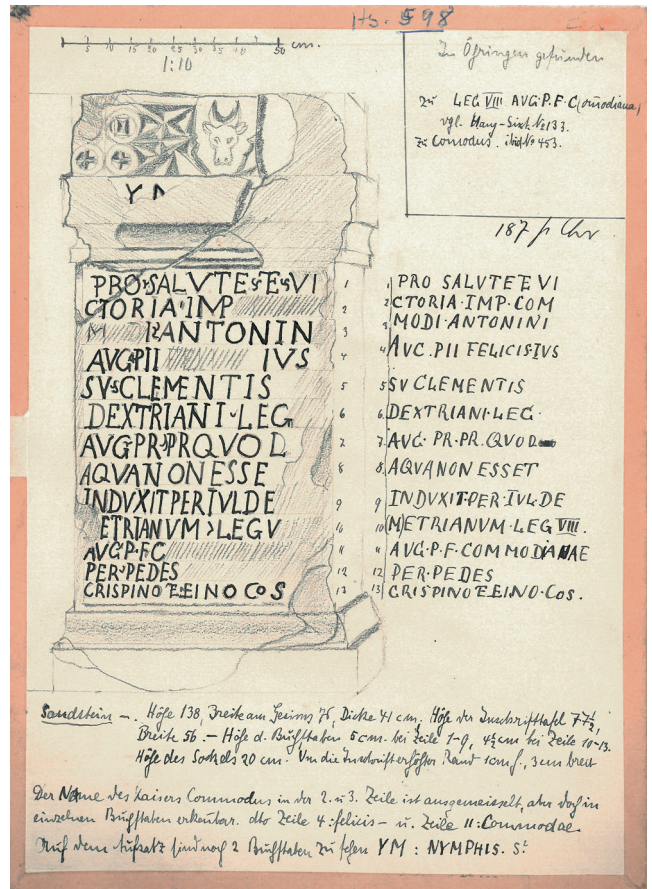 Hs. 598
5 10 15 20 25 30 35 40 50 cm.
1:10
In Öhringen gefunden
zu LEG VIII AVG·P·F·C(omodiana)
vgl. Haug-Sixt. № 133.
zu Comodus. ibid № 453.
187 p Chr
YM
PRO·SALVTE·E·VI
CTORIA·IMP
M ANTONIN
AVG·PII IVS
SVS CLEMENTIS
DEXTRIANI·LEG
AVG·PR·PRQVOD
AQVANONESSE
INDVXITPERIVLDE
ETRIANVM>LEGV
AVG·P·FC
PER·PEDES
CRISPINOETEINO COS
1 PRO SALVTE E VI
2 CTORIA·IMP·COM
3 MODI·ANTONINI
4 AVC. PII FELICIS·IVS
5 SV CLEMENTIS
6 DEXTRIANI·LEG·
7 AVG· PR·PR. QVOD
8 AQVANON ESSET
9 INDVXIT·PER·IVL·DE
10 (M)ETRIANVM·LEG VIII.
11 AVG·P·F·COMMODIANAE
12 PER·PEDES
13 CRISPINO E EINO·COS.
Sandstein –. Höhe 138, Breite am Gesims 75, Dicke 41 cm. Höhe der Inschrifttafel 77½,
Breite 56. – Höhe d. Buchstaben 5 cm. bei Zeile 1-9, 4½ cm bei Zeile 10-13.
Höhe des Sockels 20 cm. Um die Inschrift erhöhter Rand 1 cm h., 3 cm breit
Der Name des Kaisers Commodus in der 2. u 3. Zeile ist ausgemeisselt, aber doch in
einzelnen Buchstaben erkennbar. dto Zeile 4: felicis – u. Zeile 11: Commodae.
Auf dem Aufsatz sind noch 2 Buchstaben zu sehen YM : NYMPHIS. St